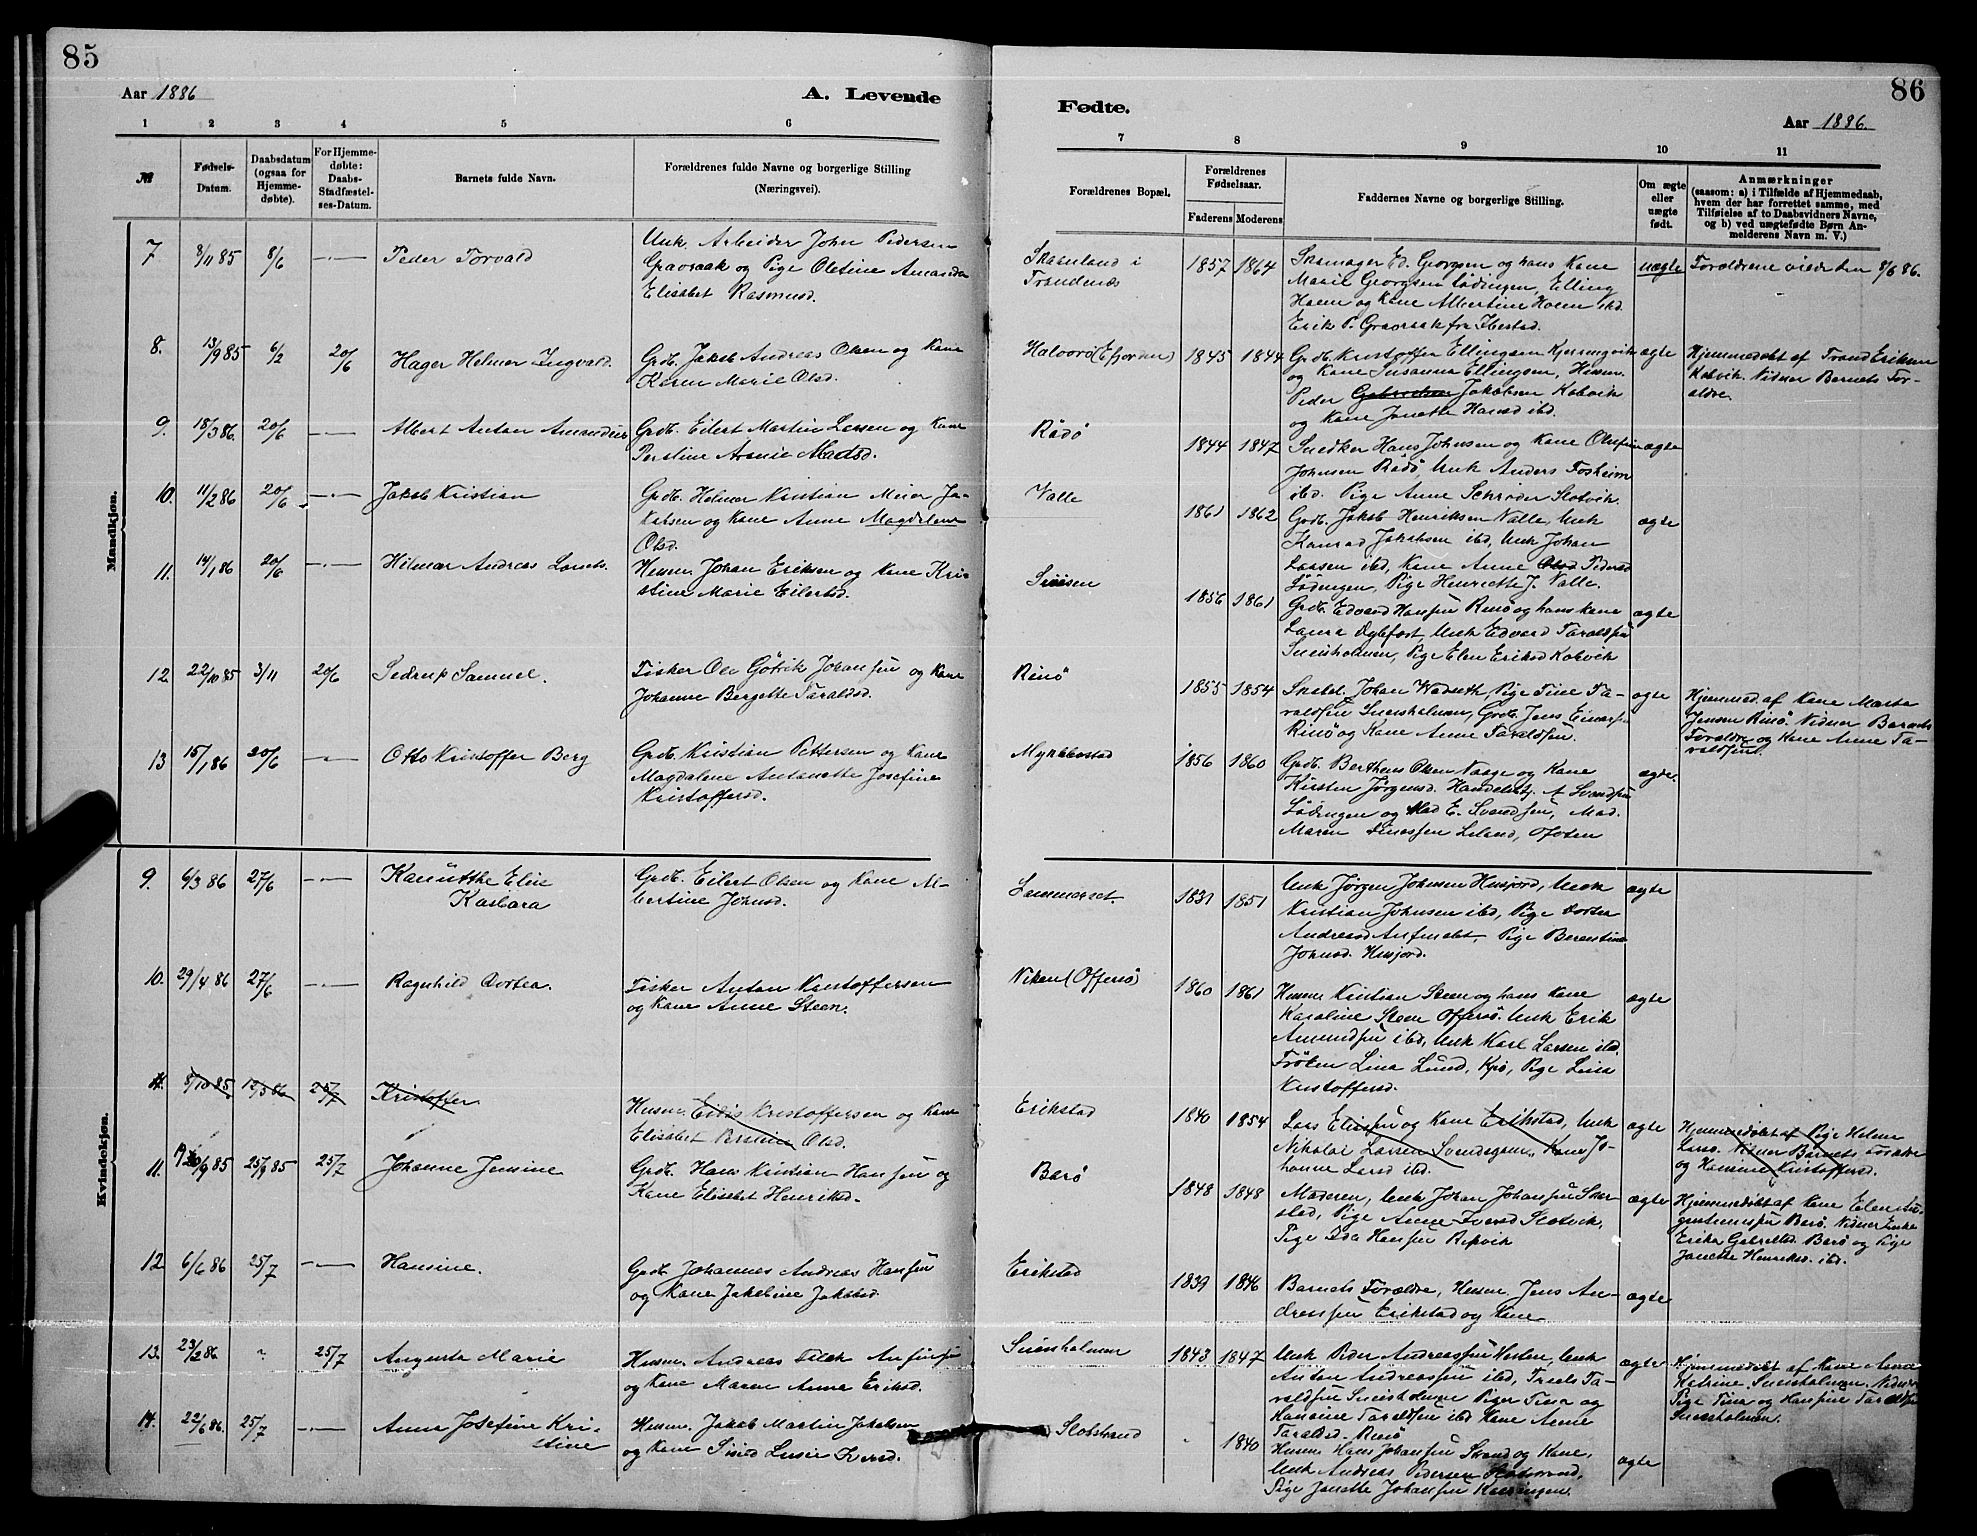 85
86
Aar 1886
A. Levende
Fødte.
Aar 1886.
1 2 3 4 5 6
7 8 9 10 11
№
Fødsels-Datum.
Daabsdatum (ogsaa for Hjemmedøbte).
For Hjemmedøbte: Daabs-Stadfæstelses-Datum.
Barnets fulde Navn.
Forældrenes fulde Navne og borgerlige Stilling
(Næringsvei).
Forældrenes Bopæl.
Forældrenes Fødselsaar.
Faderens Moderens
Faddernes Navne og borgerlige Stilling.
Om ægte eller uægte født.
Anmærkninger
(saasom: a) i Tilfælde af Hjemmedaab,
hvem der har forrettet samme, med
Tilføielse af to Daabsvidners Navne,
og b) ved uægtefødte Børn Anmelderens Navn m. V.)
Mandkjøn.
7 8/11 85 8/6 Peder Torvald
Unk. Arbeider John Pedersen
Gravraak og Pige Oletine Amanda
Elisabet Rasmusd.
Skaanland i
Trondenæs
1857 1864
Georgsen og hans Kone
Marie Georgsen Lødingen, Elling
Hoem og Kone Albertine Hoem ibd.
Erik P. Gravraak fra Ibestad.
uægte
Forældrene viede den 8/6 86.
8. 13/9 85 6/2 20/6 Hager Helmer Ingvald.
Grdb. Jakob Andreas Olsen og Kone
Karen Marie Olsd.
Halvorö (Efjorden)
1845 1844
Grdb. Kristoffer Ellingsen Kjerringvik
og Kone Susanna Ellingsen, Husm.
Peder Jakobsen Kobvik
og Kone Janette Hansd ibd.
ægte
Hjemmedøbt af Trond Eriksen
Kobvik. Vidner Barnets For-
ældre.
9. 18/3 86. 20/6 Albert Anton Amandus
Grdb. Eilert Martin Larsen og Kone
Perline Arnie Madsd.
Rådö
1844 1847
Snedker Hans Johnsen og Kone Olufine
Johnsen Rådö Unk Anders Forsheim
ibd. Pige Anne Schrøder Slotvik.
ægte
10. 11/2 86 20/6 Jakob Kristian
Grdb. Helmer Kristian Meier Ja-
kobsen og Kone Anne Magdalene
Olsd.
Valle
1861 1862
Grdb. Jakob Henriksen Valle, Unk
Konrad Jakobsen ibd, Unk Johan
Larsen ibd, Kone Anne Pedersd
Lødingen, Pige Henriette J. Valle.
ægte
11. 14/1 86 20/6 Hilmar Andreas
Husm. Johan Eriksen og Kone Kri-
stine Marie Eilertsd.
1856 1861
Grdb. Edvard Hansen Rinö og hans Kone
Laura Dybfest, Unk Edvard Taraldsen
Sneisholmen, Pige Elen Eriksd Kobvik
ægte
12 22/10 85 3/11 20/6 Pedrup Samuel.
Fisker Ole Götrik Johansen og Kone
Johanne Bergette Taraldsd.
Rinö
1855 1854
Johan Pige Tine Ta-
raldsen Sneisholmen, Grdb. Jens Einarsen
Rinö og Kone Anne Taraldsen.
ægte
Hjemmed. af Kone Marta
Jensen Rinö. Vidner Barnets
Forældre og Kone Anne Ta-
raldsen.
13 15/1 86 20/6 Otto Kristoffer Berg
Grdb. Kristian Pettersen og Kone
Magdalene Antonette Josefine
Kristoffersd.
Myklebostad
1856 1860
Grdb. Berthens Olsen Vaage og Kone
Kirsten Jörgensd. Handelsbtj. A Svendsen
Lödingen og Mad E. Svendsen, Mad.
Maren Leland, Ofoten
ægte.
Kvindekjøn.
9. 6/3 86 27/6 Elise
Karbara
Grdb. Eilert Olsen og Kone Al-
bertine Johnsd.
1831 1851
Unk Jørgen Johnsen Husjord, Unk
Kristian Johnsen ibd, Pige Dortea
Andreasd Pige Berentine
Johnsd. Husjord.
ægte
10. 29/4 86 27/6 Ragnhild Dortea.
Fisker Anton Kristoffersen
og Kone Anne Steen.
Viken (Offersö)
1860 1861
Husm Kristian Steen og hans Kone
Karoline Steen Offersö. Unk Erik
Amundsen ibd, Unk Karl Larsen ibd.
Fröken Lina Lund, Kjö, Pige Lina
Kristoffersd.
ægte
11. 5/10 85 12/3 86 25/7 Kristoffer
Husm. Elias Kristoffersen og Kone
Elisabet Olsd.
Erikstad
1840 1854
Lars Eliassen og Kone Erikstad, Unk
Nikolai Larsen Kone Jo-
hanne Larsd ibd.
ægte
Hjemmedøbt af Pige Helene
Larsd. Vidner Barnets Forældre
og Hansine Kristoffersd.
11. 25/9 85 25/7 Johanne Jensine
Grdb. Hans Kristian Hansen og
Kone Elisabet Henriksd.
Barö
1848 1848
Moderen, Unk Johan Johansen
Pige Anne Iversd Slotvik,
Pige Ida Hansen Repvik
ægte
Hjemmedøbt af Kone Elen Au-
Barö. Vidner Enke
Erika Gabrielsd. Barö og Pige
Janette Henriksd. ibd.
12 6/6 86 25/7 Hansine.
Grdb Johannes Andreas Hansen
og Kone Jakobine Jakobsd.
Erikstad
1839 1846
Barnets Forældre, Husm Jens An-
dreassen Erikstad og Kone
ægte
13. 23/2 86 ? 25/7 Augusta Marie
Husm. Andreas Falk Anfinsen
og Kone Maren Anne Eriksd.
Sneisholmen
1843 1847
Unk Peder Andreassen Unk
Anton Andreassen ibd, Troels Ta-
raldsen Sneisholmen Piger Tina og
Hansine Taraldsen ibd Kone Anne
Taraldsd. Rinö
ægte
Hjemmedøbt af Kone Anne
Katrine Sneisholmen. Vidner
Pige Tina og Hansine Taraldsen
Sneisholmen.
14. 22/6 86. 25/7 Anne Josefine Kri-
stine
Husm. Jakob Martin Jakobsen
og Kone Lusie Iversd.
Slotstrand
1840
Husm Hans Johansen Strand og Kone,
Unk Andreas Pedersen
Pige Janette Johansen
ægte